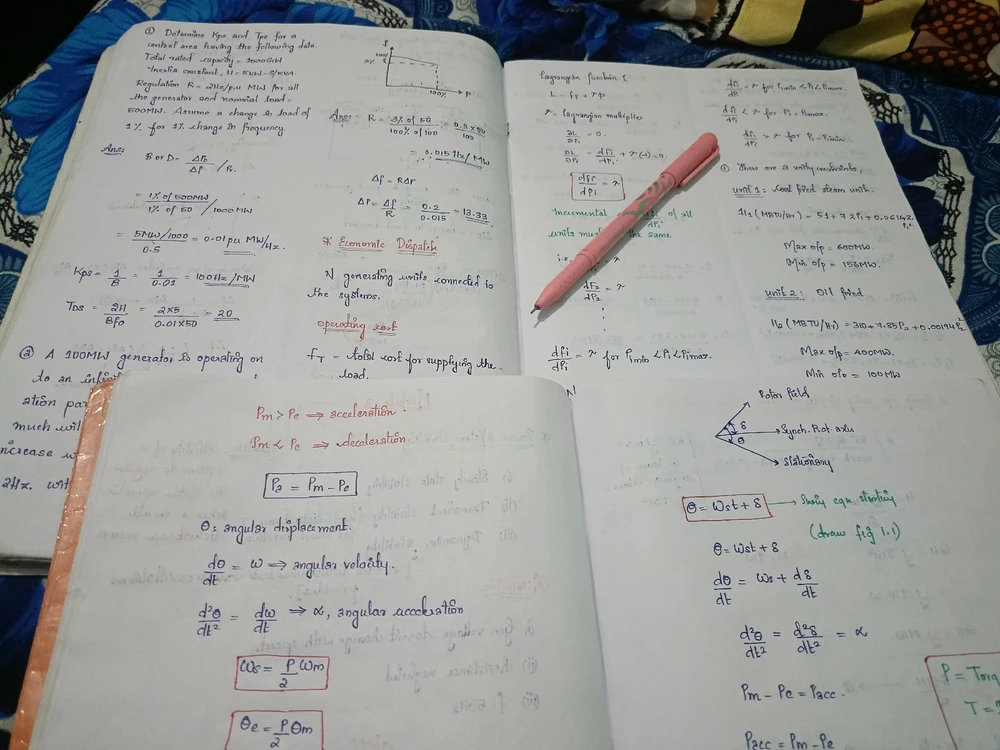 ① Determine Kps and Tps for a
control area having the following data.
Total rated capacity = 1000GW
Inertia constant, H = 5KW-S/KVA
Regulation R = 2Hz/pu MW for all
the generator and nominal load =
500MW. Assume a change is load of
1% for 1% change is frequency.
Ans:
B or D = ΔP₀/Δf / Pr.
= 1% of 500MW / 1% of 50 / 1000MW
= 5MW/1000 / 0.5 = 0.01 pu MW/Hz.
Kps = 1/B = 1/0.01 = 100Hz/MW
Tps = 2H/Bfo = 2×5/0.01×50 = 20
② A 100MW generator is operating on
to an infini
ation par
much wil
increase w
2Hz. wit
f
100%
P
Ans: R = 3% of 50 / 100% of 100 = 0.3×50 / 100
= 0.015 Hz/MW
Δf = RΔP
ΔP = Δf/R = 0.2/0.015 = 13.33
* Economic Dispatch
N generating units connected to
the systems.
Operating cost
FT = total cost for supplying the
load.
Lagrangian function L
L = FT + λφ
λ = Lagrangian multiplies
∂L/∂Pi = 0.
∂L/∂Pi = dFi/dPi + λ(-1) = 0.
dFi/dPi = λ
Incremental of all
units must the same
i.e. = λ
dF₂/dP₂ = λ
dFi/dPi = λ for Pimin < Pi < Pimax.
N
dFi/dPi = λ for Pimin < Pi < Pimax.
dFi/dPi < λ for Pi = Pimax.
dFi/dPi > λ for Pi = Pimin.
① There are
unit 1: Coal fired steam unit.
H₁ (MBTU/Hr) = 51 + 7.2P₁ + 0.00142
P₁²
Max o/p = 600MW.
Min o/p = 150MW.
unit 2: Oil fired
H₂ (MBTU/Hr) = 310 + 7.85P₂ + 0.00194P₂²
Max o/p = 400MW.
Min o/p = 100MW
Pm > Pe ⟹ acceleration.
Pm < Pe ⟹ deceleration
Pa = Pm - Pe
θ: angular displacement.
dθ/dt = ω ⟹ angular velocity.
d²θ/dt² = dω/dt ⟹ α, angular acceleration
ωs = P/2 ωm
θe = P/2 θm
Rotor field
δ
θ
Synch. Rot. axis
Stationary
θ = Wst + δ → Swing eqn starting
(draw fig 1.1)
θ = Wst + δ
dθ/dt = Ws + dδ/dt
d²θ/dt² = d²δ/dt² = α
Pm - Pe = Pacc.
Pacc = Pm - Pe
P = Torq
T =